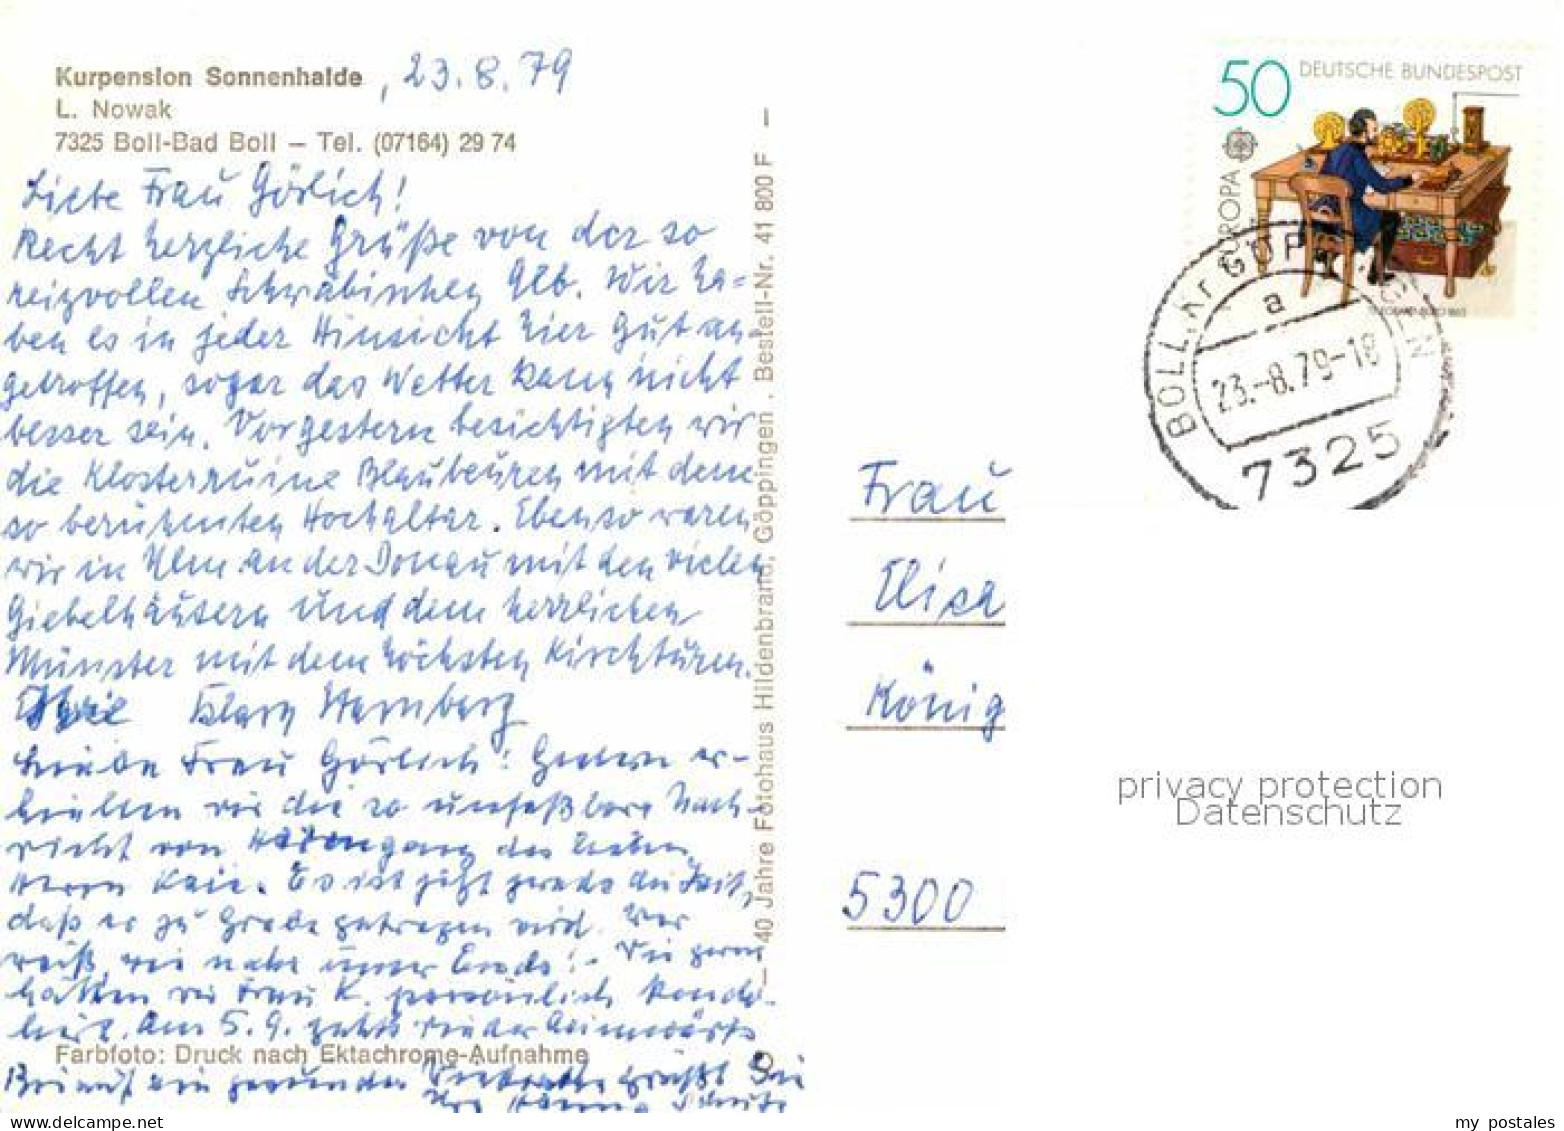 Kurpension Sonnenhalde , 23.8.79
L. Nowak
7325 Boll-Bad Boll – Tel. (07164) 29 74
Liebe Frau Görlich!
Recht herzliche Grüße von der so
reizvollen Schwäbischen Alb. Wir ha=
ben es in jeder Hinsicht hier gut an
getroffen, sogar das Wetter kann nicht
besser sein. Vorgestern besichtigten wir
die Klosterruine Blaubeuren mit dem
so berühmten Hochaltar. Ebenso waren
wir in Ulm an der Donau mit den vielen
Giebelhäusern und dem herrlichen
Münster mit dem höchsten Kirchturm.
Ihre Klara
Liebe Frau Görlich! Gestern er-
hielten wir die so unfaßbare Nach-
richt von Heimgang des lieben
Herrn Es ist jetzt gerade die Zeit,
daß er zu Grabe getragen wird. Wer
weiß, wie nahe unser Ende! – Wie gerne
hätten wir Frau K. persönlich kondo-
liert. Am 5.9. geht's wieder heimwärts
Farbfoto: Druck nach Ektachrome-Aufnahme
Bis auf ein gesundes grüßt Sie
Ihre
– 40 Jahre Fotohaus Hildenbrand, Göppingen . Bestell-Nr. 41 800 F –
50 DEUTSCHE BUNDESPOST
EUROPA
BOLL, Kr GÖPPINGEN
a
23.-8.79-18
7325
Frau
Elisa
König
5300
privacy protection
Datenschutz
my postales
www.delcampe.net